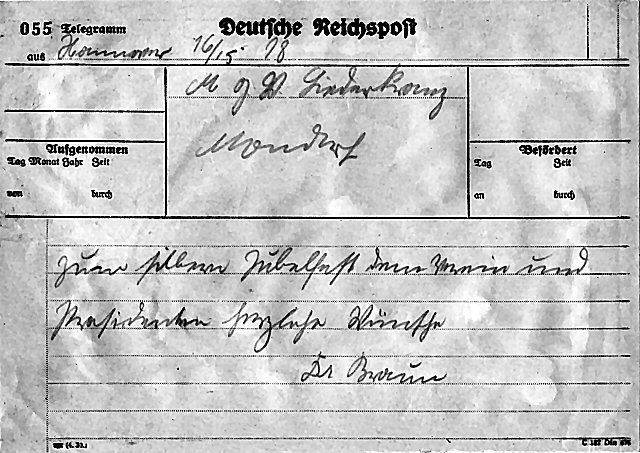 055 Telegramm Deutsche Reichspost
aus Hannover 16/15 18
M g V. Liederkranz
Mondorf
Aufgenommen
Tag Monat Jahr Zeit
von durch
Befördert
Tag Zeit
an durch
Zum silbern Jubelfest dem Verein und
Präsidenten herzlche Wünsche
Dr Braun
C 187 Din